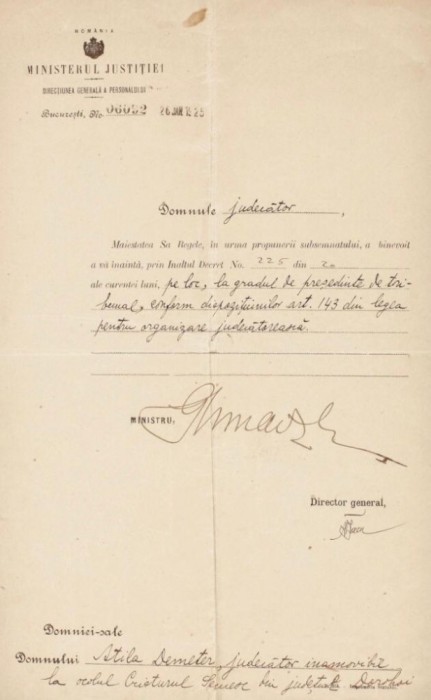 ROMÂNIA
MINISTERUL JUSTIȚIEI
DIRECȚIUNEA GENERALĂ A PERSONALULUI
București, No. 06092 26 JAN 1925
Domnule judecător,
Maiestatea Sa Regele, în urma propunerii subsemnatului, a binevoit
a vă înainta, prin Inaltul Decret No. 225 din 20
ale curentei luni, pe loc, la gradul de președinte de tri-
bunal, conform dispozițiunilor art. 143 din legea
pentru organizare judecătorească.
MINISTRU,
Director general,
Domniei-sale
Domnului Atila Demeter, judecător inamovibil
la ocolul Cristurul Secuesc din județul Dorohoi